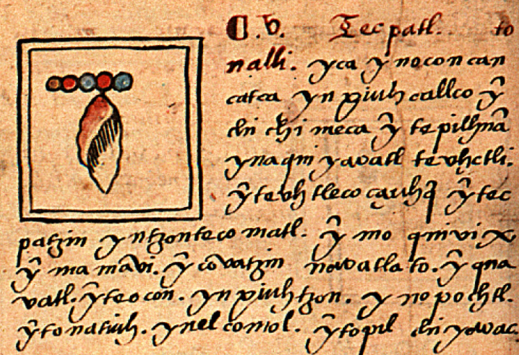 C. v. Tecpatl. to
nalli. yca ynoconcan
catca yn piuhcallco ȳ
chichimeca ȳ tepilhuā
ynaqui yavatl tevhctli.
ȳ tevhtlecocauhq̄ ȳ tec
patzin yntzontecomatl. ȳ mo quivix
ȳ mamavi. ȳ covatzin navatlato. ȳ qna
vatl. ȳ teocon. yn piuhtzon. y nopochtl.
ȳ tonatiuh. ynelcomol. ȳ topil chiyavac